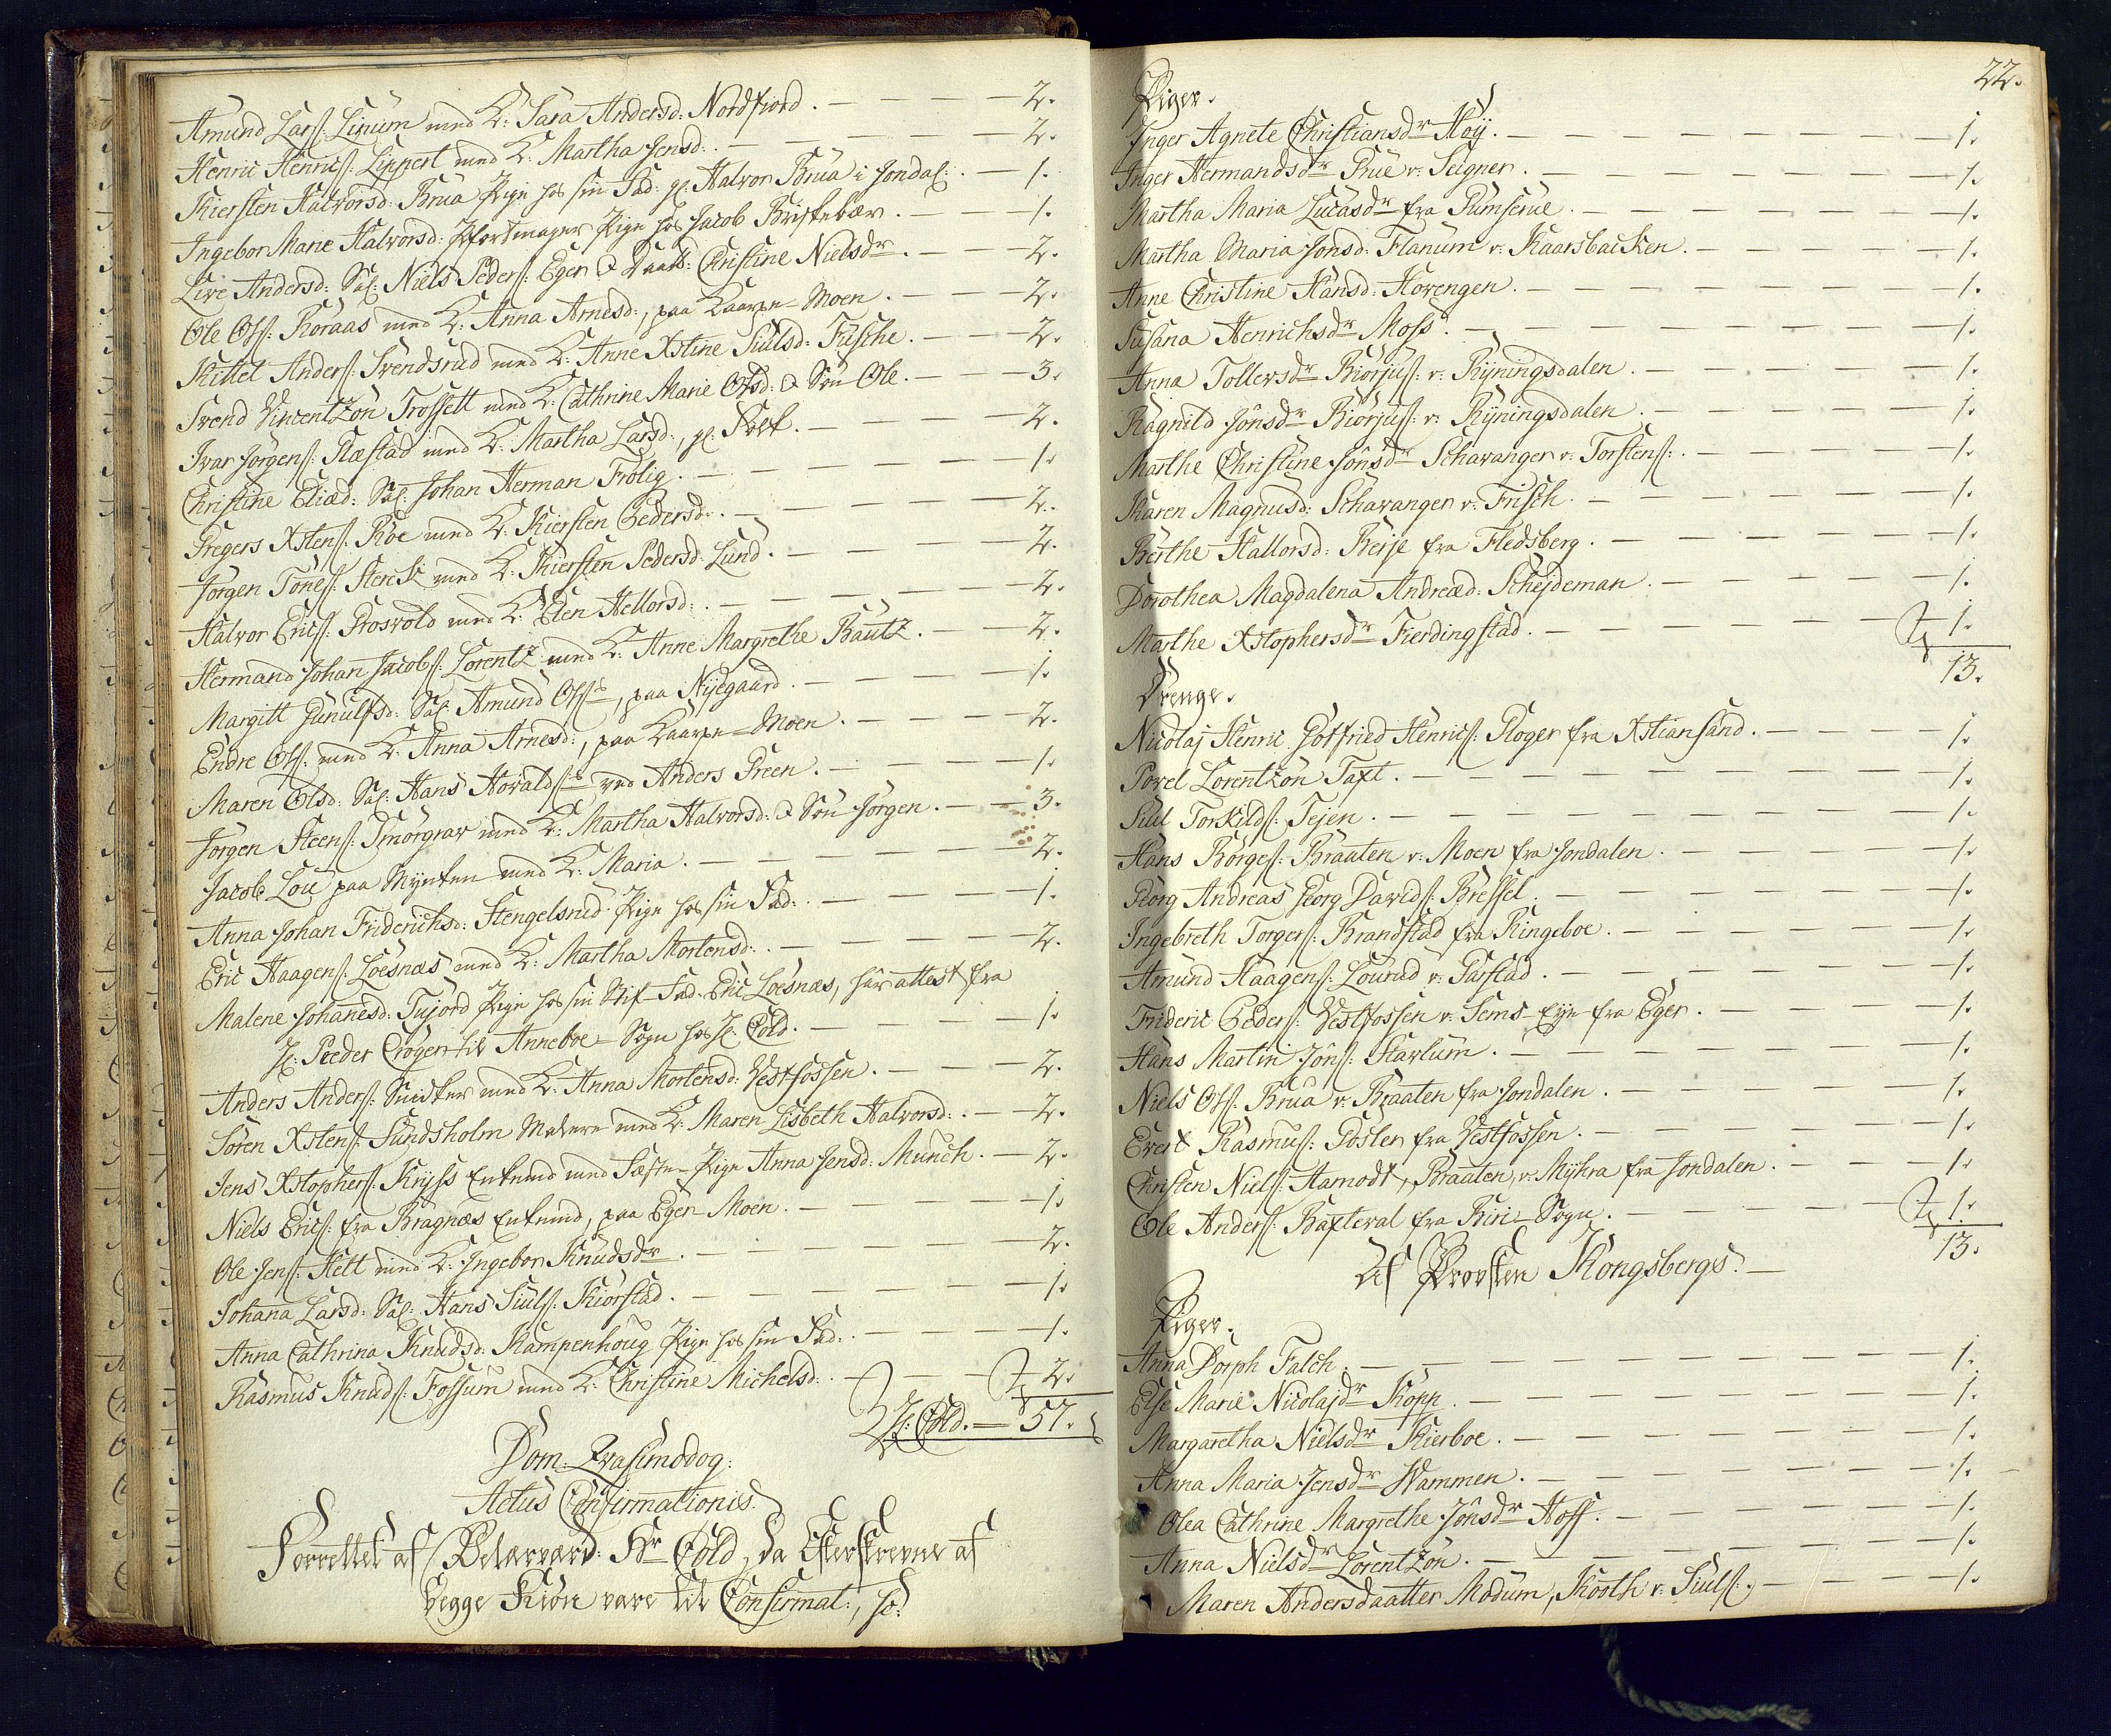 Amund Lars: Linum med K: Sara Andersd: Nordfiord. — — — — 2.
Henric Henrics: Lippert med K: Martha Jensd: — — — — 2.
Kiersten Halvorsd: Brua Pige hos sin Fad: gl: Halvor Brua i Jondal: — 1.
Ingebor Marie Halvorsd: Pige hos Jacob Briskebær. — — — 1.
Live Andersd: Sal: Niels Peders: Eger & Daatt: Christine Nielsdr. — — 2.
Ole Ols: Roraas med K: Anna Arnesd:, paa Kaarpe-Moen. — — 2.
Kittel Anders: Svendsrud med K: Anne Xstine Siulsd: Fusche. — — 2.
Svend Vincentzøn Trossett med K: Cathrine Marie Olsd: & Søn Ole. — — 3.
Ivar Jørgens: Næstad med K: Martha Larsd:, gl: Folk. — — — 2.
Christine Eliæd: Sal: Johan Herman Frølig. — — — — 1.
Gregers Xstens: Roe med K: Kiersten Pedersd: — — — — 2.
Jørgen Tønes: Stensli med K: Kiersten Pedersd: Lund. — — — 2.
Halvor Erics: Grosvold med K: Elen Hellorsd: — — — — 2.
Hermand Johan Jacobs: Lorentz med K: Anne Margrethe Bautz. — — 2.
Margitt Gunulfsd: Sal: Amund Ols:, paa Nyegaard. — — — 1.
Endre Ols: med K: Anna Arnesd:, paa Kaarpe-Moen. — — — 2.
Maren Olsd: Sal: Hans Hovalds: ved Anders Green. — — — 1.
Jørgen Steens: Smørgrav med K: Martha Halvorsd: & Søn Jørgen. — — 3.
Jacob Lou paa Mynten med K: Maria. — — — — — 2.
Anna Johan Friderichsd: Stengelsrud Pige hos sin Fad: — — — 1.
Eric Haagens: Loesnæs med K: Martha Mortensd: — — — — 2.
Malene Johanesd: Tujord Pige hos sin Stif-Fad: Eric Loesnæs, har attest fra
H: Peder Crøger til Anneboe-Sogn hos H: Cold. — — — — 1.
Anders Anders: Snicker med K: Anna Mortensd: Vestfossen. — — — 2.
Søren Xstens: Sundsholm Malere med K: Maren Lisbeth Halvorsd: — — 2.
Jens Xstophers: Knyss Enkmd med Fæste-Pige Anna Jensd: Munch. — 2.
Niels Erics: fra Bragnæs Enkmd, paa Eger-Moen. — — — — 1.
Ole Jens: Hett med K: Ingebor Knudsdr. — — — — — 2.
Johana Larsd: Sal: Hans Siuls: Kiørstad. — — — — — 1.
Anna Cathrina Knudsd: Kampenhoug Pige hos sin Fad: — — — — 1.
Rasmus Knuds: Fossum med K: Christine Michelsd: — — — 2.
H: Cold. — 57.
Dom: Qvasimodog:
Actus Confirmationis.
Forrettet af Velærværd: Hr Cold, da Efterskrevne af
begge Kiøn vare til Confirmat:, sc:
22.
Piger.
Inger Agnete Christiansdr Høy. — — — — — 1.
Inger Hermandsdr Brue v: Seigner. — — — — — 1.
Martha Maria Lucasdr fra Rumserue. — — — — — 1.
Martha Maria Jonsd: Flanum v: Kaarsbacken. — — — — 1.
Anne Christine Hansd: Hovengen. — — — — — 1.
Susana Henrichsdr Moss. — — — — — 1.
Anna Tollevsdr Biørjus: v: Ryningsdalen. — — — — 1.
Ragnild Jônsdr Biørjus: v: Ryningsdalen. — — — — 1.
Marthe Christine Jônsdr Schavanger v: Torstens: — — — — 1.
Karen Magnusd: Schavanger v: Frisch. — — — — — 1.
Berthe Hallorsd: Berje fra Fledsberg. — — — — — 1.
Dorothea Magdalena Andreæd: Schejdeman. — — — — 1.
Marthe Xstophersdr Fierdingstad. — — — — 1.
13.
Drenge.
Nicolaj Henric Gotfried Henrics: Ploger fra Xstiansand. — — — 1.
Povel Lorentzøn Taxt. — — — — — 1.
Siul Torkilds: Tejen. — — — — — 1.
Hans Børges: Braaten v: Moen fra Jondalen. — — — — 1.
Georg Andreas Georg Davids: Bressel. — — — — — 1.
Ingebreth Torgers: Brandstad fra Ringeboe. — — — — — 1.
Amund Haagens: Lourud v: Farstad. — — — — — 1.
Frideric Peders: Vestfossen v: Sems-Eye fra Eger. — — — — 1.
Hans Martin Jôns: Starlum. — — — — — 1.
Niels Ols: Brua v: Braaten fra Jondalen. — — — — — 1.
Evert Rasmus: Gosler fra Vestfossen. — — — — — 1.
Christen Niels: Hamodt, Braaten, v: Myhra fra Jondalen. — — — 1.
Ole Anders: Baxteval fra Biri-Sogn. — — — — 1.
13.
Af Provsten Kongsbergs. —
Piger.
Anna Dorph Falch. — — — — — 1.
Else Marie Nicolajdr Kopp. — — — — — 1.
Margaretha Nielsdr Kierboe. — — — — — 1.
Anna Maria Jensdr Wammen. — — — — — 1.
Olea Cathrine Margrethe Jônsdr Hoff. — — — — — 1.
Anna Nielsdr Lorentzøn. — — — — — 1.
Maren Andersdaatter Modum, Kooth v: Siuls: — — — — 1.